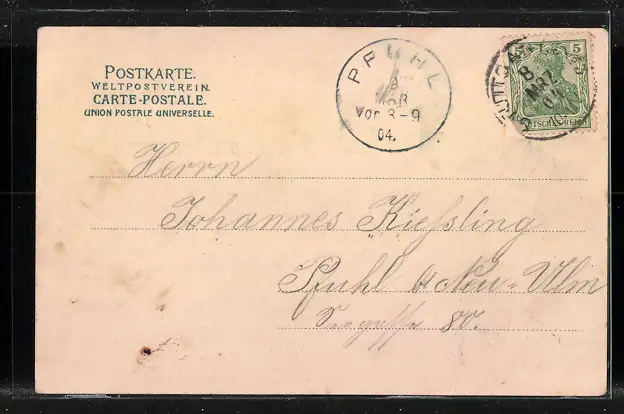 POSTKARTE.
WELTPOSTVEREIN.
CARTE-POSTALE.
UNION POSTALE UNIVERSELLE.
PFUHL
9
MRZ
Vor. 8-9
04.
STUTTGART
8
MRZ
5
DEUTSCHES REICH
Herrn
Johannes Kießling
Pfuhl b/ Neu-Ulm
80.